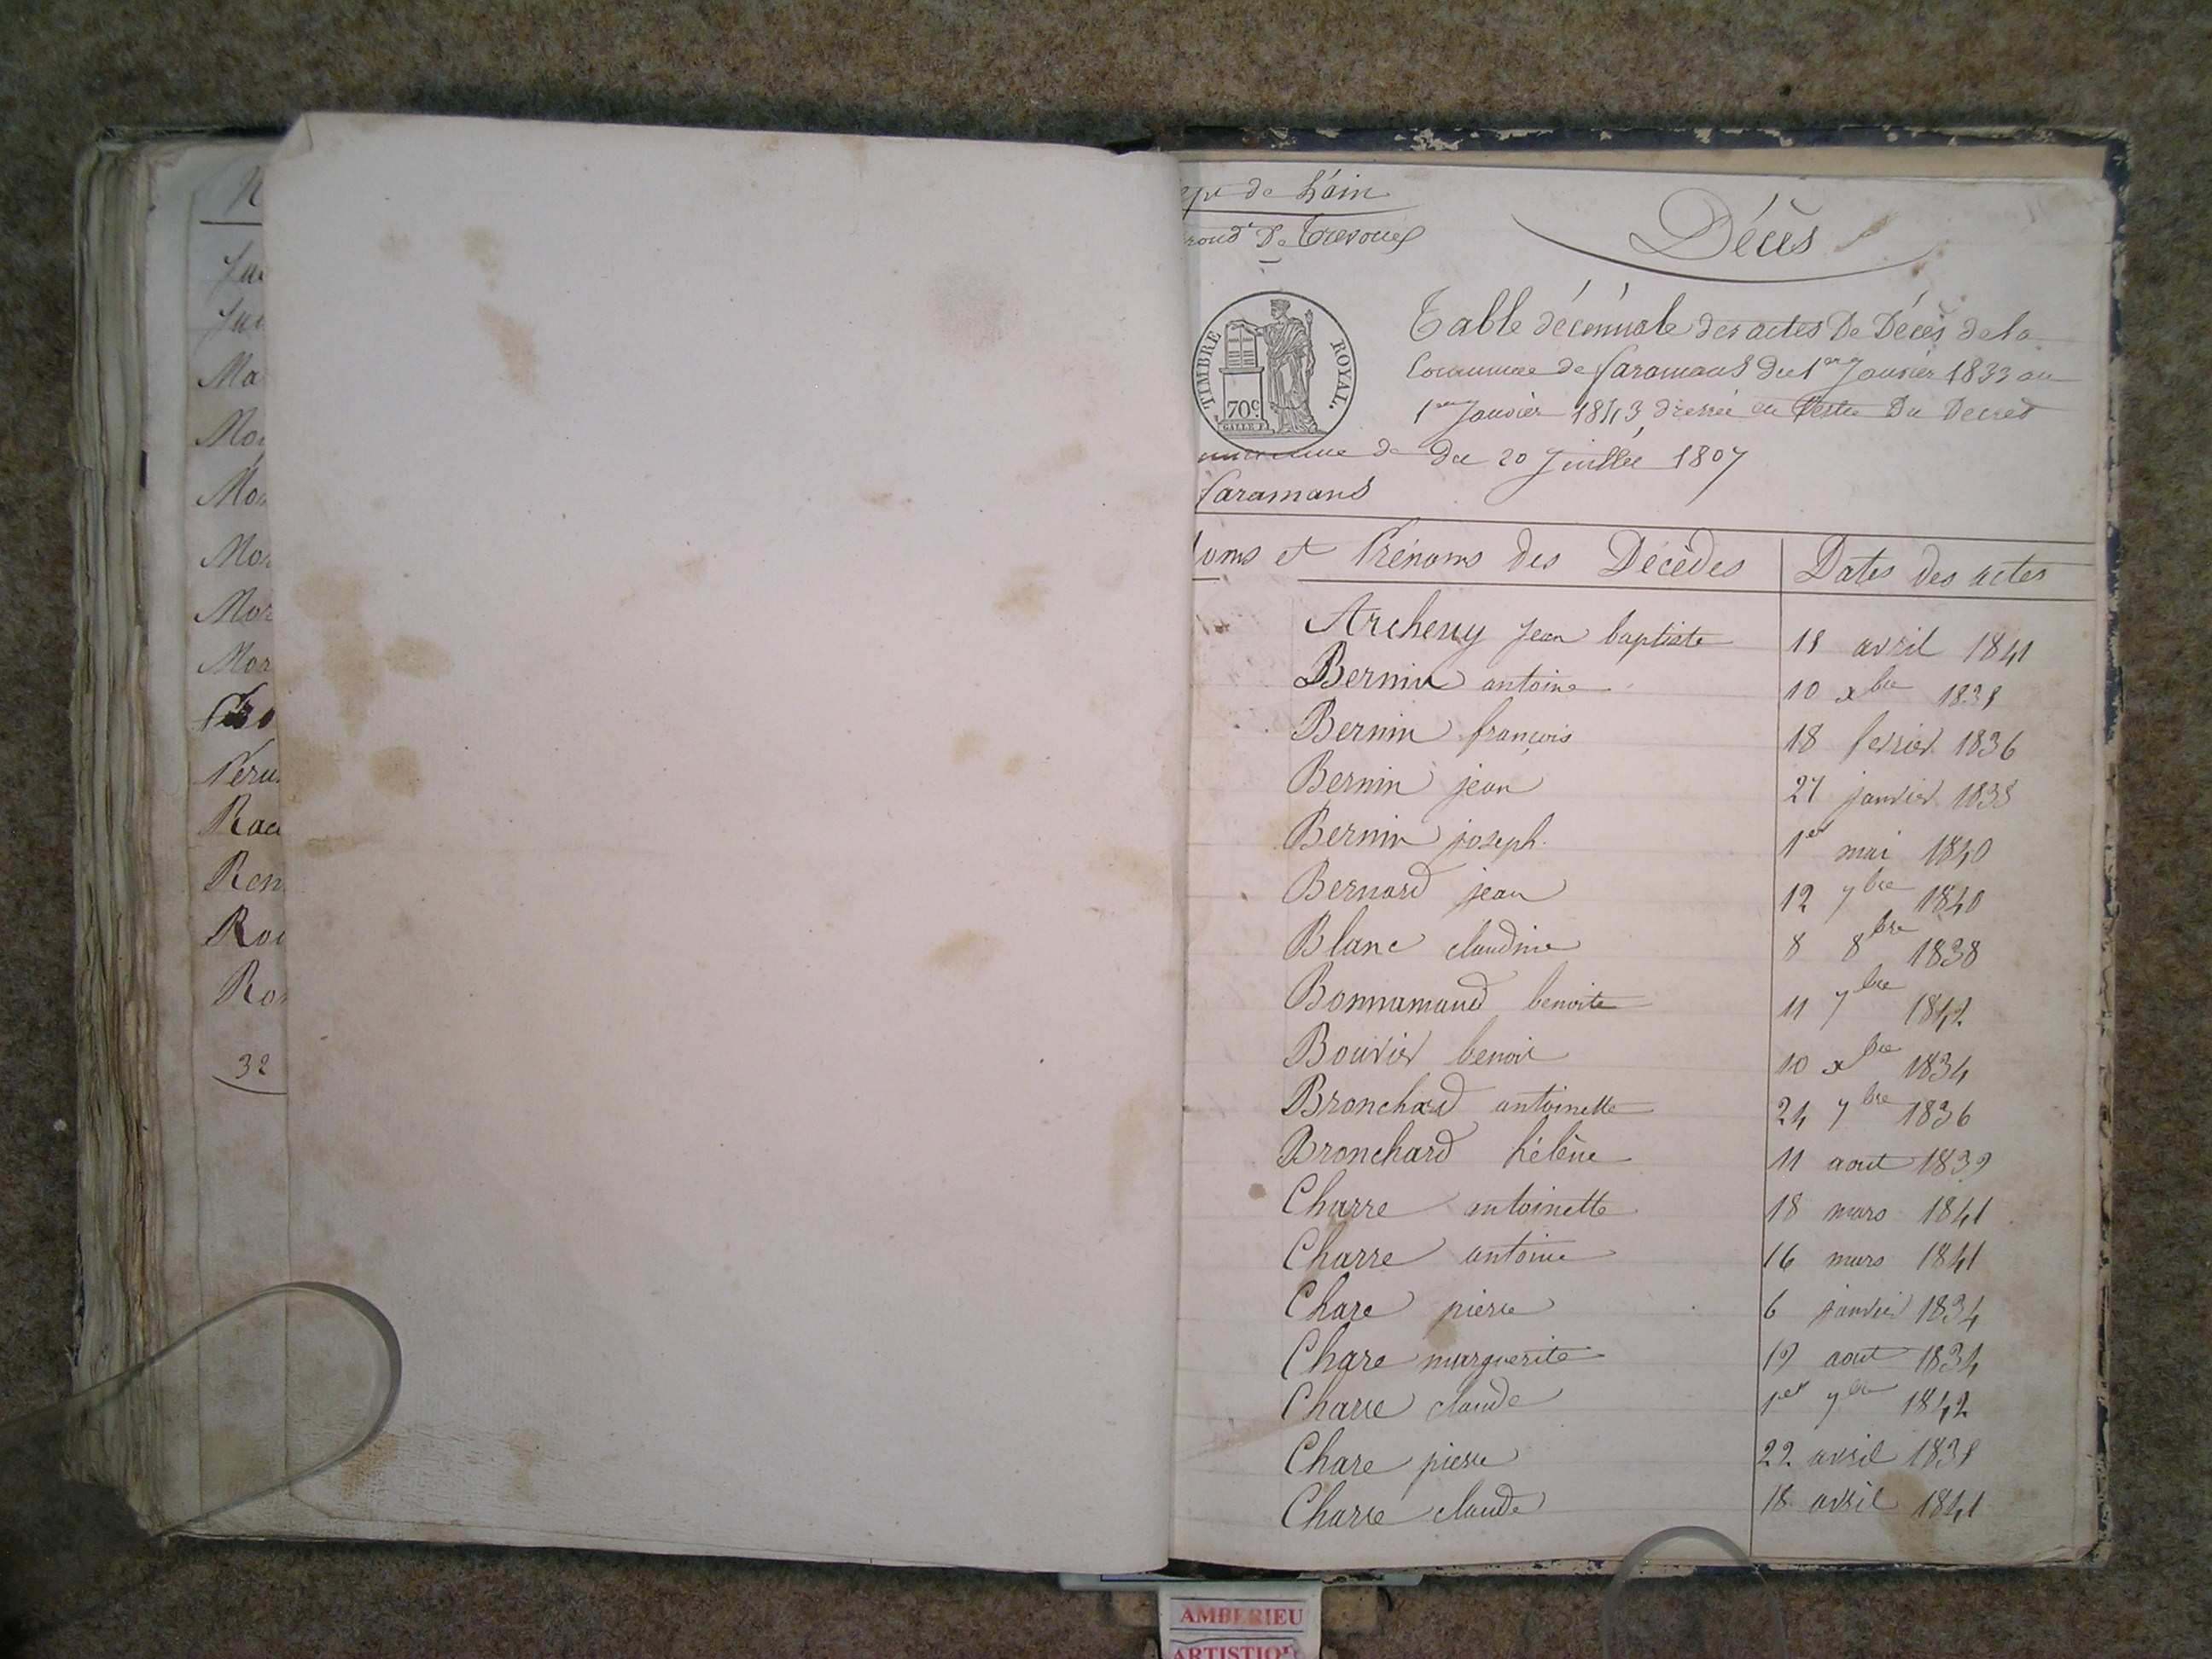 N
Ma
Mo
Mo
Mo
Mor
Mor
Peru
Rac
Ren
Ro
Ro
32
ept de L'ain
rond.t De Trevoux
Décès
TIMBRE ROYAL.
70c
Table décennale des actes De Décès de la
Commune de faramans Du 1er Janvier 1833 au
1er Janvier 1843 dressée en Du Decret
de du 20 Juillet 1807
faramans
oms et Prénoms des Décèdes Dates des actes
Archeny jean baptiste 18 avril 1841
Bernin antoine 10 xbre 1838
Bernin françois 18 fevrier 1836
Bernin jean 27 janvier 1838
Bernin joseph. 1er mai 1840
Bernard jean 12 7bre 1840
Blanc claudine 8 8bre 1838
Bonnamand benoite 11 7bre 1842
Bouvier benoit 10 xbre 1834
Bronchard antoinette 24 7bre 1836
Bronchard hélène 11 aout 1839
Charre antoinette 18 mars 1841
Charre antoine 16 mars 1841
Chare pierre 6 janvier 1834
Chare marguerite 19 aout 1834
Charre claude 1er 7bre 1842
Chare pierre 22 avril 1838
Charre claude 18 avril 1841
AMBERIEU
ARTISTIQ